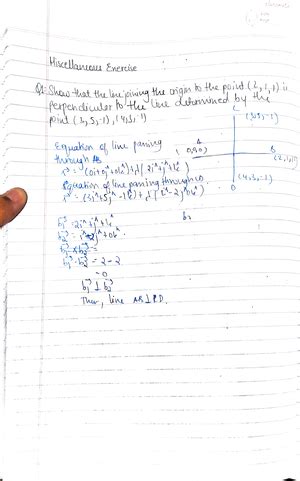 Miscellaneous Exercise
Q1. Show that the line joining the origin to the point (2,1,1) is
perpendicular to the line determined by the
point (3,5,-1), (4,3,-1)
Equation of line passing
through AB
r⃗ = (0i^+0j^+0k^)+λ(2i^+j^+1k^)
Equation of line passing through CD
r⃗ = (3i^+5j^-1k^)+λ(i^-2j^+0k^)
b₁⃗ = 2i^+j^+1k^
b₂⃗ = i^-2j^+0k^
b₁⃗ . b₂⃗ =
b₁⃗ . b₂⃗ = 2-2
=0
b₁⃗ ⊥ b₂⃗
Then, line AB ⊥ CD.
C
(3,5,-1)
A
(0,0,0)
B
(2,1,1)
(4,3,-1)
D
b₂